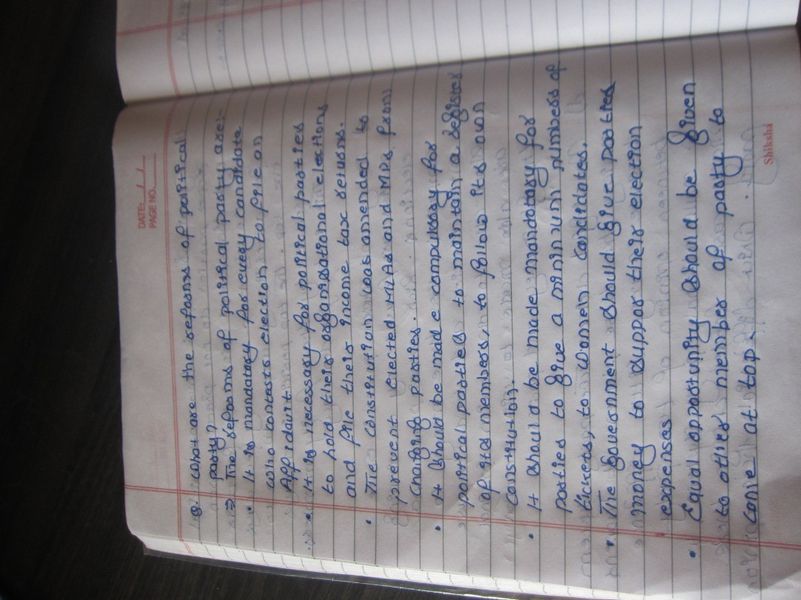 DATE: / /
PAGE NO.
Q. What are the reforms of political
party?
⇒ The reforms of political party are:-
• It is mandatory for every candidate
who contests election to file an
Affidavit.
• It is necessary for political parties
to hold their organisational elections
and file their income tax returns.
• The constitution was amended to
prevent elected MLAs and MPs from
changing parties.
• It should be made compulsory for
political parties to maintain a register
of its members, to follow its own
constitution.
• It should be made mandatory for
parties to give a minimum numbers of
tickets, to women candidates.
• The government should give parties
money to suppor their election
expenses
• Equal opportunity should be given
to other member of party to
come at top.
Shiksha